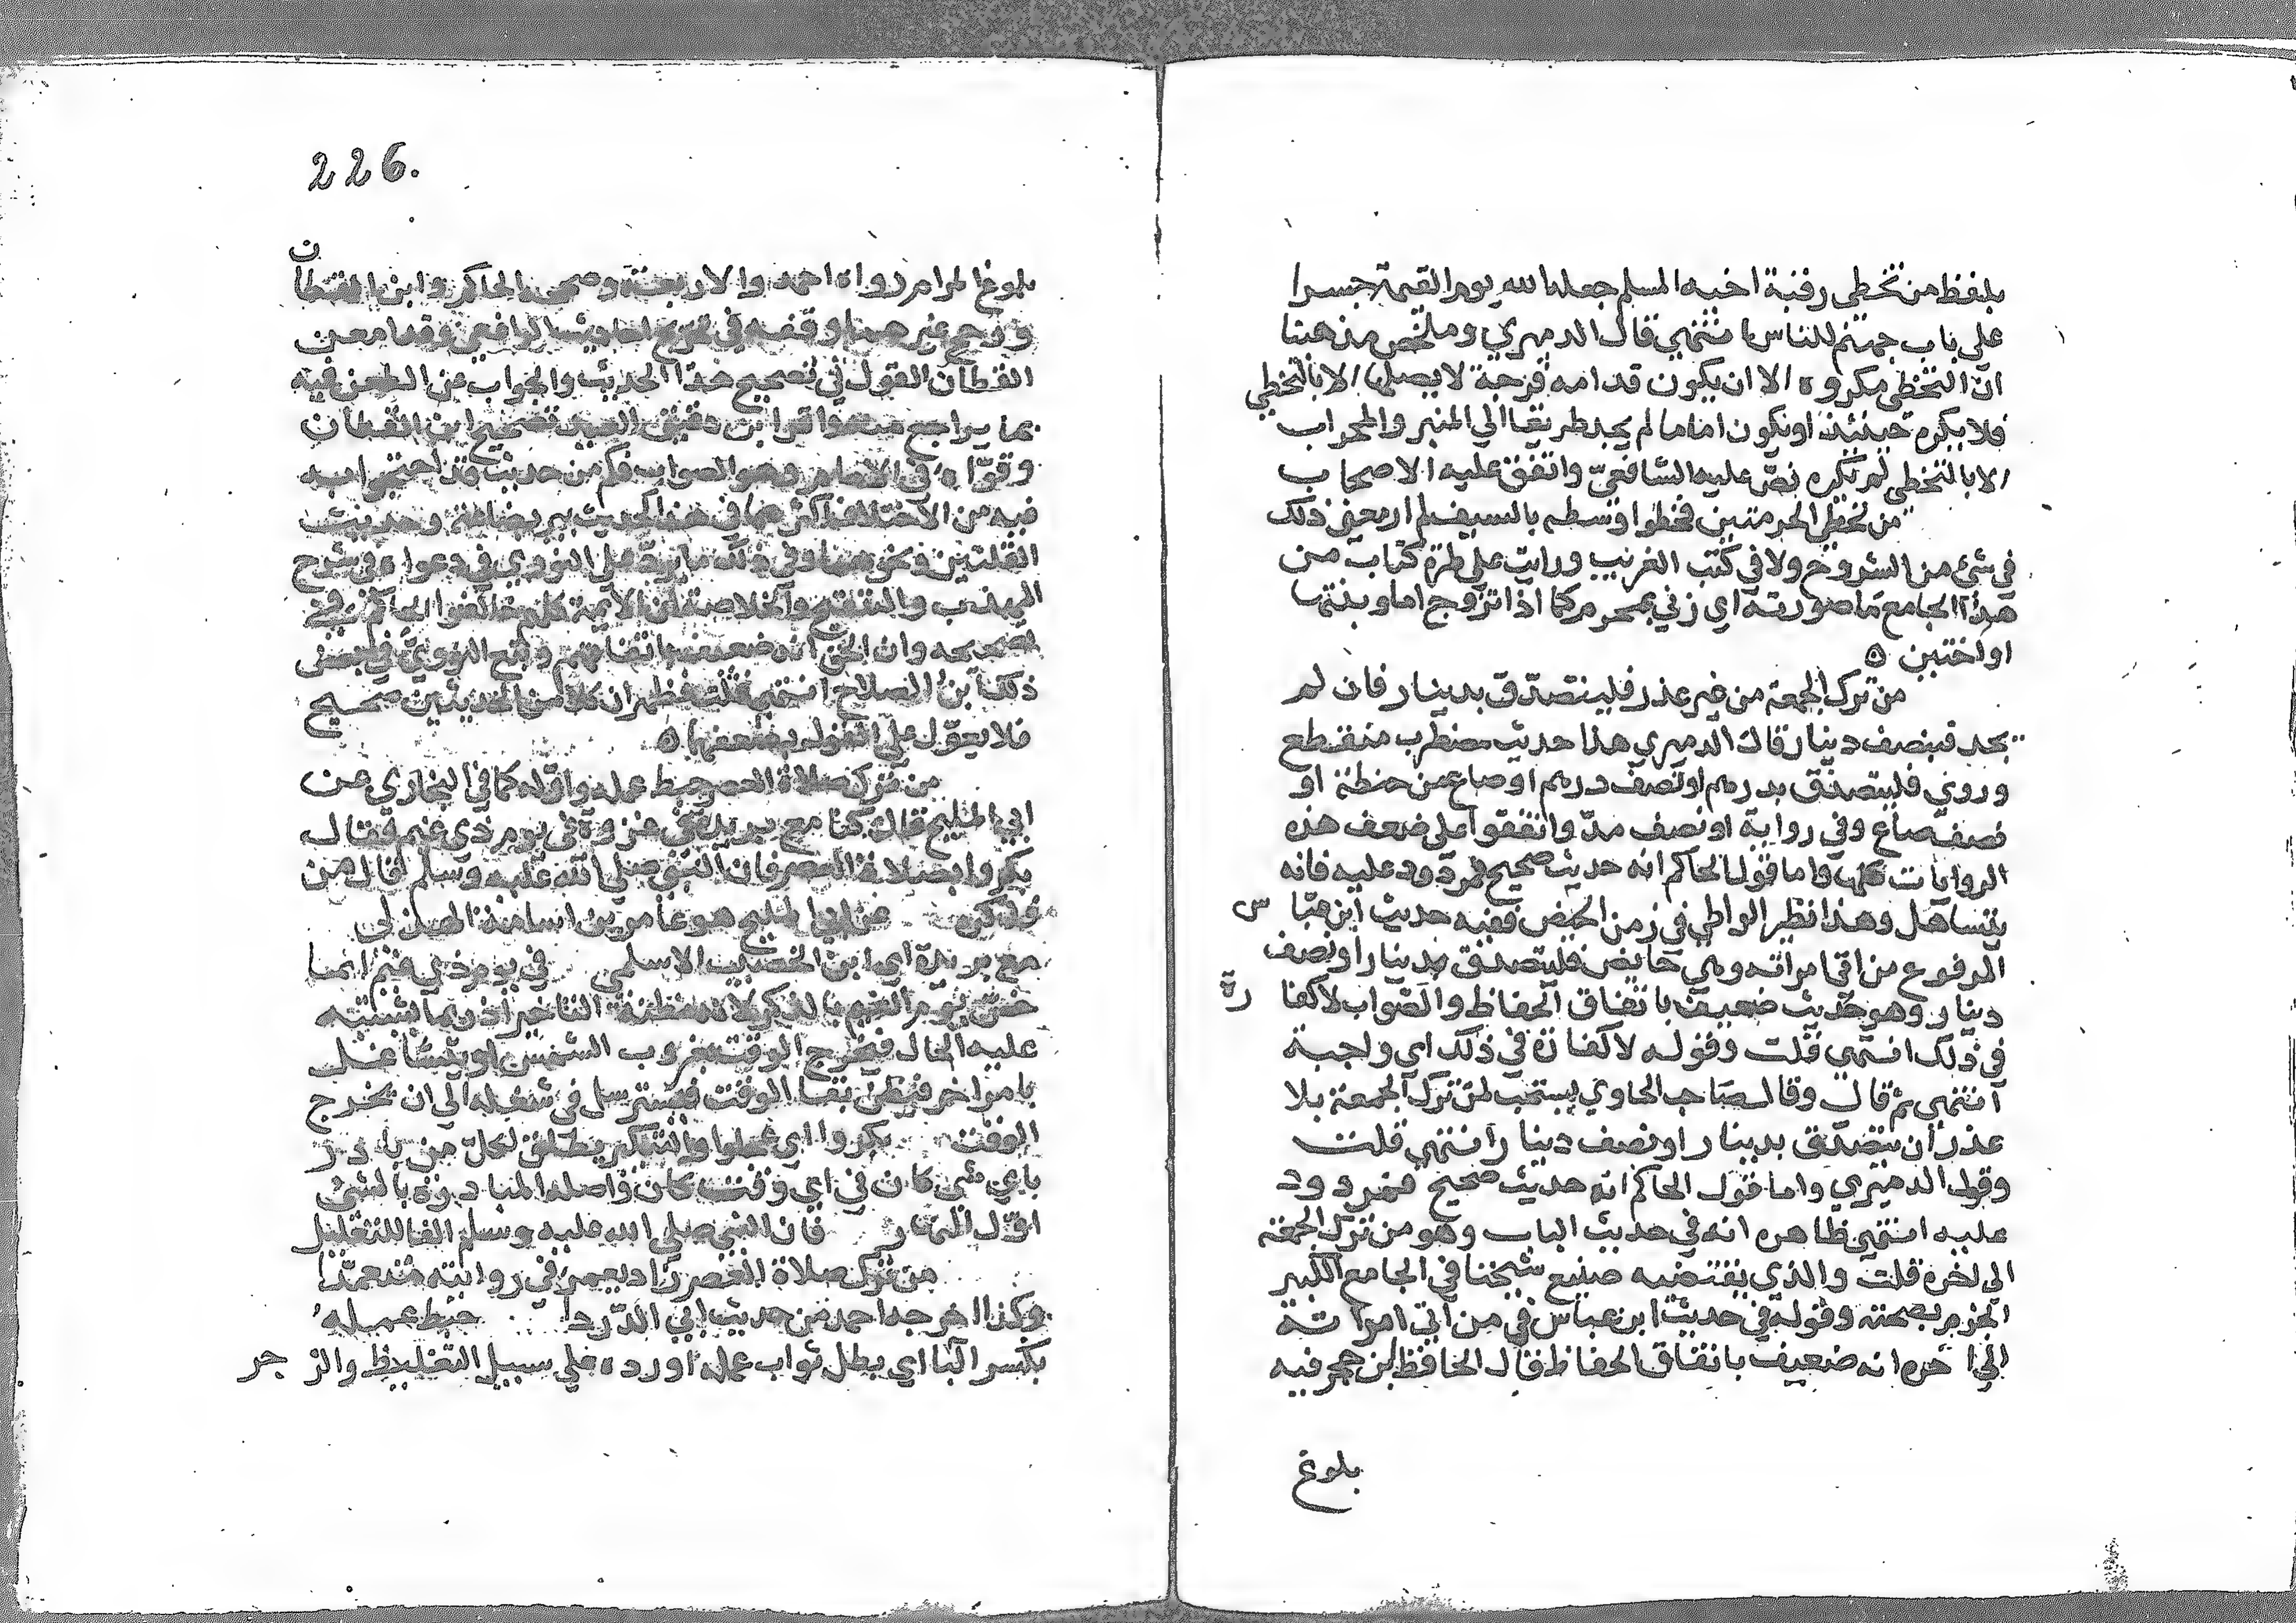 بلفظ من تخطى رقبة اخيه المسلم جعله الله يوم القيمة جسرا
على باب جهنم للناس انتهى قال الدميري وملخص مذهبنا
ان التخطى مكروه الا ان يكون قدامه فرجة لا يصلها الا بالتخطي
فلا يكره حينئذ او يكون اماما لم يجد طريقا الي المنبر والمحراب
الا بالتخطى لم يكره نص عليه الشافعيّ واتفق عليه الاصحاب
من تخطى الحرمتين فخطوا وسطه بالسيف لم ار معنى ذلك
في شئ من الشروح ولا في كتب الغريب ورايت على طرة كتاب من
هذا الجامع ما صورته اي زني بمحرم كما اذا تزوج اما وبنتها
او اختين ه
من ترك الجمعة من غير عذر فليتصدّق بدينار فان لم
يجد فبنصف دينار قال الدميري هذا حديث مضطرب منقطع
وروي فليتصدق بدرهم او نصف درهم او صاع من حنطة او
نصف صاع وفي رواية او نصف مدّ واتفقوا على ضعف هذه
الروايات كلها واما قول الحاكم انه حديث صحيح فمردود عليه فانه
يتساهل وهذا نظير الواطي في زمن الحيض ففيه حديث ابن عبا س
المرفوع من اتي امراته وهي حايض فليتصدق بدينار او نصف
دينار وهو حديث ضعيف باتفاق الحفاظ والصواب لا كفا رة
في ذلك انتهى قلت وقوله لا كفارة في ذلك اي واجبة
انتهي ثم قال وقال صاحب الحاوي يستحب لمن ترك الجمعة بلا
عذر ان يتصدق بدينار او نصف دينار انتهي قلت
وقول الدميري واما قول الحاكم انه حديث صحيح فمردود
عليه انتهى ظاهره انه في حديث الباب وهو من ترك الجمعة
الى اخره قلت والذي يقتضيه صنيع شيخنا في الجامع الكبير
الجزم بصحته وقوله في حديث ابن عباس في من اتي امراته
الي اخره انه ضعيف باتفاق الحفاظ قال الحافظ ابن حجر فيه
بلوغ
226.
بلوغ المرام رواه احمد والاربعة وصححه الحاكم وابن القطان
ورجح غيرهما وقفه في تخريج احاديث الرافعي وقد امعن
القطان القول في تصحيح هذا الحديث والجواب عن الطعن فيه
بما يراجع منه واقر ابن دقيق العيد تصحيح ابن القطان
وقوّاه في الالمام وهو الصواب فكم من حديث قد احتجوا به
فيه من الاختلاف اكثر مما في هذا الحديث بير بضاعة وحديث
القلتين ونحوهما وفي ذلك ما يردّ على النووي في دعواه في شرح
المهذب والتنقيح والخلاصة ان الايمة كلهم خالفوا الحاكم في
تصحيحه وان الحق انه ضعيف باتفاقهم وتبع النووي في بعض
ذلك ابن الصلاح انتهى قلت فظهر ان كلا من الحديثين صحيح
فلا يعوّل على القول بضعفهما ه
من ترك صلاة العصر حبط عمله واوّله كما في البخاري عن
ابي المليح قال كنا مع بريدة في غزوة في يوم ذي غيم فقال
بكروا بصلاة العصر فان النبي صلي الله عليه وسلم قال من
فذكره عن ابي المليح هو عامر بن اسامة الهذلي
مع بريدة اي ابن الخصيب الاسلمي في يوم ذي غيم انما
خصّ يوم الغيم بالذكر لانه مظنة التاخير اذ ربما يشتبه
عليه الحال فيخرج الوقت بغروب الشمس او يتشاغل
بامر اخر فيظن بقا الوقت فيسترسل في شغله الي ان يخرج
الوقت بكروا اي عجلوا والتبكير يطلق لكل من بادر
باي شي كان في اي وقت كان واصله المبادرة بالشئ
اوّل النهار فان النبي صلي الله عليه وسلم الفا للتعليل
من ترك صلاة العصر زاد معمر في روايته متعمدا
وكذا اخرجه احمد من حديث ابي الدّردا حبط عمله
بكسر البا اي بطل ثواب عمله اورده على سبيل التغليظ والز جر